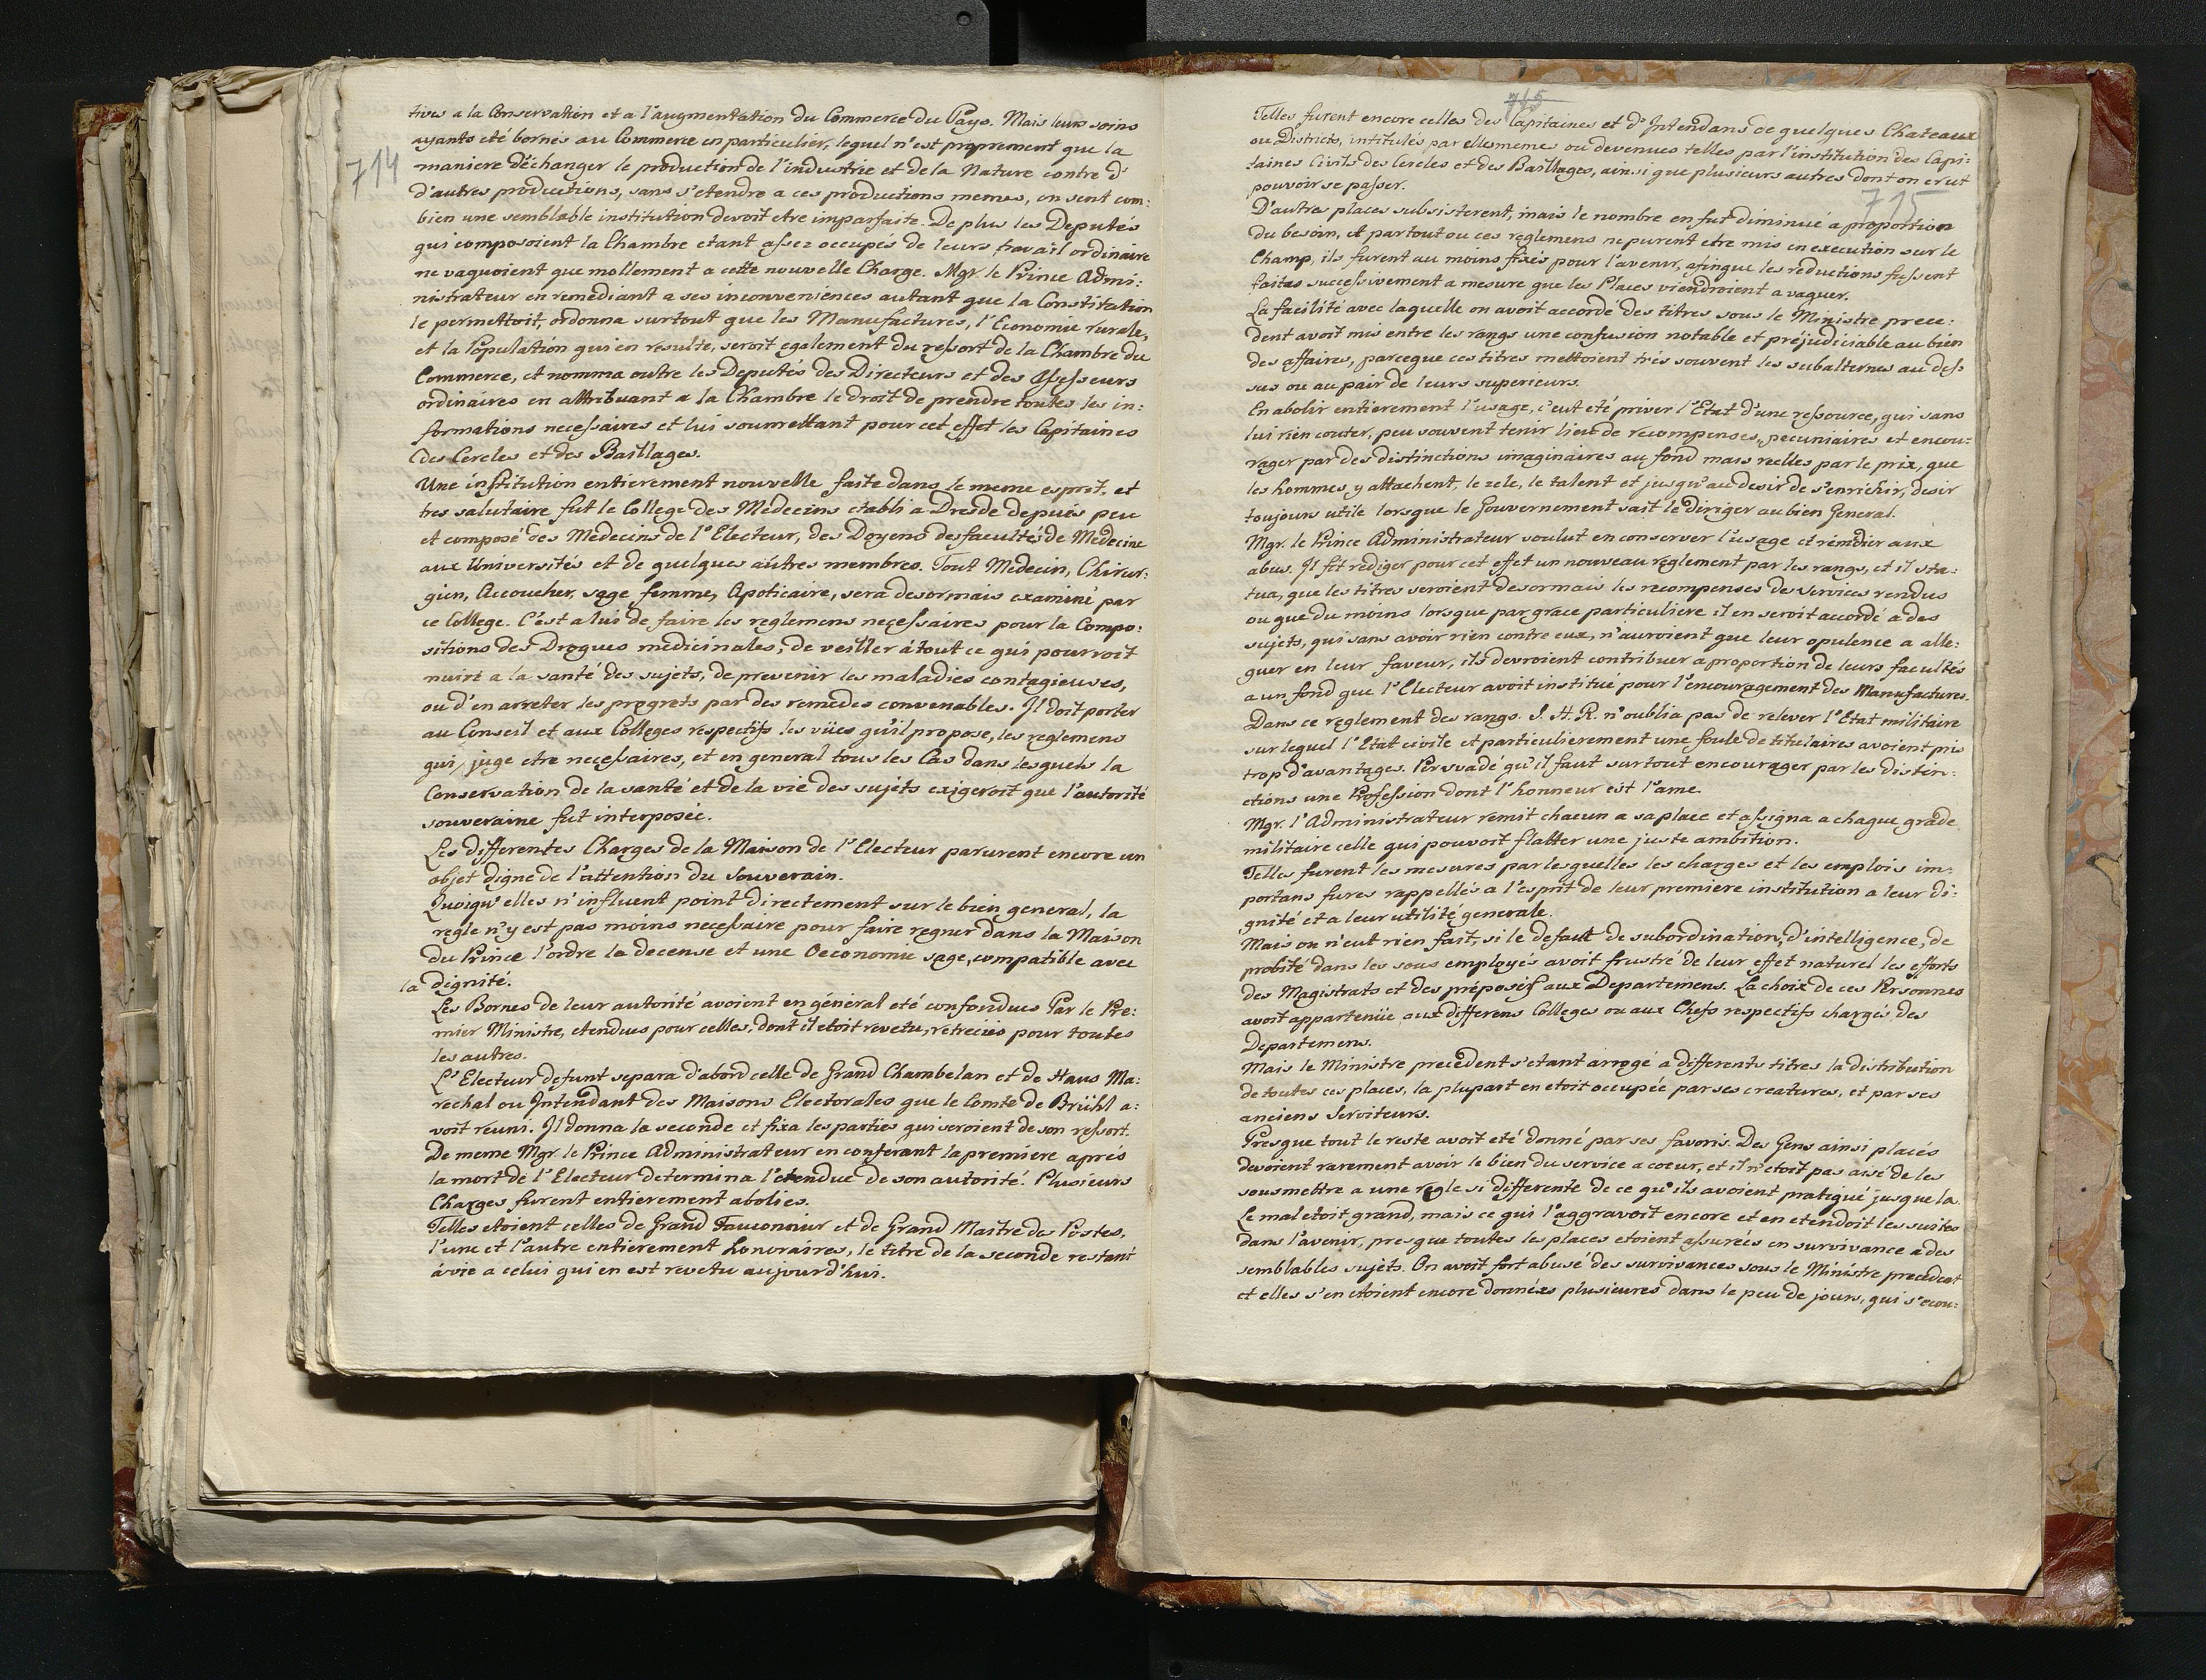 714
tives a la Conservation et a l'augmentation du Commerce du Pays. Mais leurs soins
ayants eté bornés au Commerce en particulier, lequel n'est proprement que la
maniere d'échanger le production de l'industrie et de la Nature contre d'
d'autres productions, sans s'etendre a ces productions memes, on sent com:
bien une semblable institution devoit etre imparfaite. De plus les Deputés
qui composoient la Chambre etant assez occupés de leurs travail ordinaire
ne vaquoient que mollement a cette nouvelle Charge. Mgr. le Prince Admi:
nistrateur en remediant a ses inconveniences autant que la Constitution
le permettoit, ordonna surtout que les Manufactures, l'Economie rurale,
et la Population qui en resulte, seroit egalement du ressort de la Chambre du
Commerce, et nomma outre les Deputés des Directeurs et des Assesseurs
ordinaires en attribuant a la Chambre le droit de prendre toutes les in:
formations necessaires et lui soumettant pour cet effet les Capitaines
des Cercles et des Baillages.
Une institution entierement nouvelle faite dans le meme esprit, et
tres salutaire fut le College des Médecins etabli a Dresde depuis peu
et composé des Médecins de l'Electeur, des Doyens des facultés de Médecine
aux Universités et de quelques autres membres. Tout Medecin, Chirur:
gien, Accoucher, sage femme, Apoticaire, sera desormais examiné par
ce College. C'est a lui de faire les reglemens necessaires pour la Compo:
sitions des Drogues médicinales, de veiller á tout ce qui pourroit
nuire a la santé des sujets, de prevenir les maladies contagieuses,
ou d'en arreter les progrets par des remédes convenables. Il doit porter
au Conseil et aux Colleges respectifs les vües qu'il propose, les reglemens
qui, juge etre necessaires, et en general tous les Cas dans lesquels la
Conservation de la santé et de la vie des sujets exigeroit que l'autorité
souveraine fut interposée.
Les differentes Charges de la Maison de l'Electeur parurent encore un
objet digne de l'attention du Souverain.
Quoiqu'elles n'influent point directement sur le bien general, la
regle n'y est pas moins necessaire pour faire regner dans la Maison
du Prince l'ordre la decense et une Oeconomie sage, compatible avec
la dignité.
Les Bornes de leur autorité avoient en général eté confondues Par le Pre:
mier Ministre, etendues pour celles, dont il etoit revetu, retrecies pour toutes
les autres.
L'Electeur defunt separa d'abord celle de Grand Chambelan et de Haus Ma:
rechal ou Intendant des Maisons Electorales que le Comte de Brühl a:
voit reuni. Il donna la seconde et fixa les parties qui seroient de son ressort.
De meme Mgr. le Prince Administrateur en conferant la premiere apres
la mort de l'Electeur determina l'etendue de son autorité. Plusieurs
Charges furent entierement abolies.
Telles etoient celles de Grand Fauconnier et de Grand Maitre des Postes,
l'une et l'autre entierement honoraires, le titre de la seconde restant
á vie a celui qui en est revetu aujourd'hui.
715
715
Telles furent encore celles des Capitaines et d'Intendans de quelques Chateaux
ou Districts, intitulés par ellesmemes ou devenues telles par l'institution des Capi:
taines Civils des Cercles et des Baillages, ainsi que plusieurs autres dont on crut
pouvoir se passer.
D'autres places subsisterent, mais le nombre en fut diminué a proportion
du besoin, et partout ou ces reglemens ne purent etre mis en execution sur le
Champ, ils furent au moins fixés pour l'avenir, afinque les réductions fussent
faites successivement a mesure que les Places viendroient a vaquer.
La facilité avec laquelle on avoit accordé des titres sous le Ministre prece:
dent avoit mis entre les rangs une confusion notable et préjudiciable au bien
des affaires, parceque ces titres mettoient trés souvent les subalternes au des
sus ou au pair de leurs superieurs.
En abolir entierement l'usage, c'eut eté priver l'Etat d'une ressource, qui sans
lui rien couter, peu souvent tenir lieu de recompenses, pecuniaires et encou:
rager par des distinctions imaginaires au fond mais reelles par le prix, que
les hommes y attachent, le zele, le talent et jusqu'au desir de s'enrichir, desir
toujours utile lorsque le Gouvernement sait le diriger au bien General.
Mgr. le Prince Administrateur voulut en conserver l'usage et rémedier aux
abus. Il fit rediger pour cet effet un nouveau reglement par les rangs, et il sta:
tua, que les titres seroient desormais les recompenses des services rendus
ou que du moins lorsque par grace particuliere il en seroit accordé a des
sujets, qui sans avoir rien contre eux, n'auroient que leur opulence a alle:
guer en leur faveur, ils devroient contribuer a proportion de leurs facultés
a un fond que l'Electeur avoit institué pour l'encouragement des Manufactures.
Dans ce reglement des rangs. S. A. R. n'oublia pas de relever l'Etat militaire
sur lequel l'Etat civile et particulierement une foule de titulaires avoient pris
trop d'avantages. Persuadé qu'il faut surtout encourager par les distin:
ctions une Profession dont l'honneur est l'ame.
Mgr. l'Administrateur remit chacun a sa place et assigna a chaque grade
militaire celle qui pouvoit flatter une juste ambition.
Telles furent les mesures par lesquelles les charges et les emplois im:
portans fures rappellés a l'esprit de leur premiere institution a leur di:
gnité et a leur utilité generale.
Mais on n'eut rien fait, si le defaut de subordination, d'intelligence, de
probité dans les sous employés avoit frustré de leur effet naturel les efforts
des Magistrats et des préposés aux Departemens. La choix de ces Personnes
avoit appartenüe aux differens Colleges ou aux Chefs respectifs charges des
Departemens.
Mais le Ministre precedent s'etant arrogé a differents titres la distribution
de toutes ces places, la plupart en etoit occupée par ses creatures, et par ses
anciens Serviteurs.
Presque tout le reste avoit eté donné par ses favoris. Des Gens ainsi placés
devoient rarement avoir le bien du service a coeur, et il n'etoit pas aisé de les
sousmettre a une regle si differente de ce qu'ils avoient pratiqué jusque la.
Le mal etoit grand, mais ce qui l'aggravoit encore et en etendoit les suites
dans l'avenir, presque toutes les places etoient assurées en survivance a des
semblables sujets. On avoit fort abusé des survivances sous le Ministre precedent
et elles s'en etoient encore données plusieures dans le peu de jours, qui s'ecou: